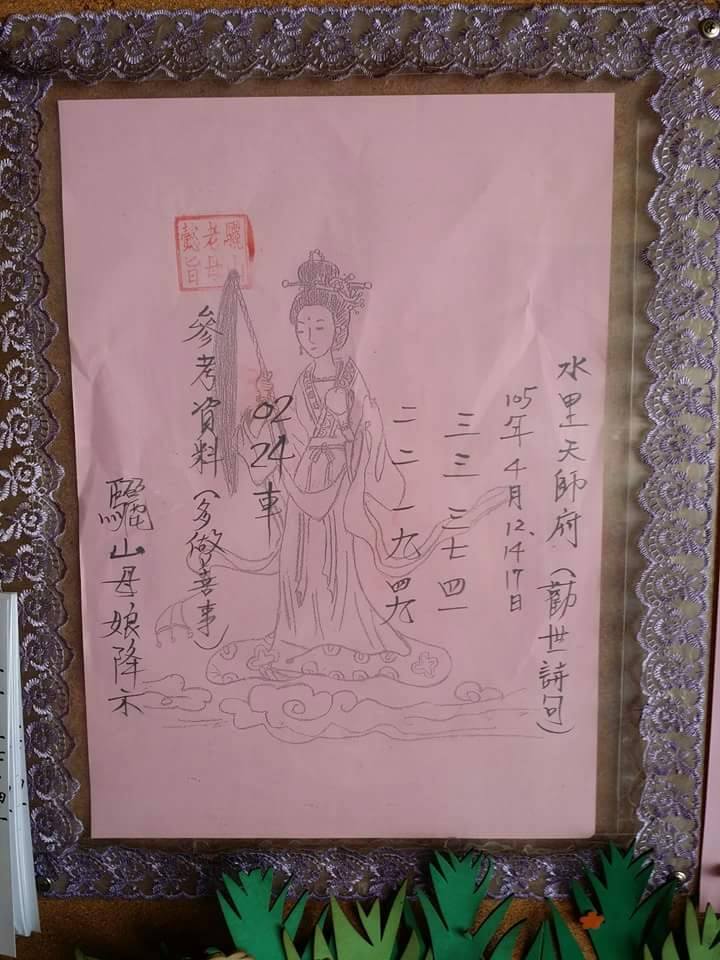 水里天師府(勸世詩句)
105年4月12.14.17日
三三 三七 四一
二二 一九 四九
02 24 車
參考資料(多做善事)
驪山母娘降示
驪山老母懿旨